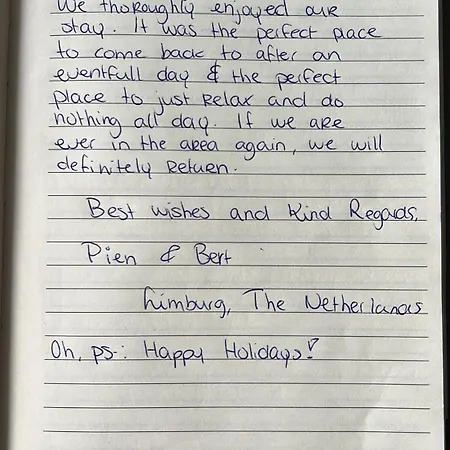 We thoroughly enjoyed our
stay. It was the perfect place
to come back to after an
eventfull day & the perfect
place to just relax and do
nothing all day. If we are
ever in the area again, we will
definitely return.
Best wishes and kind regards,
Pien & Bert
Limburg, The Netherlands
Oh, ps.: Happy Holidays!